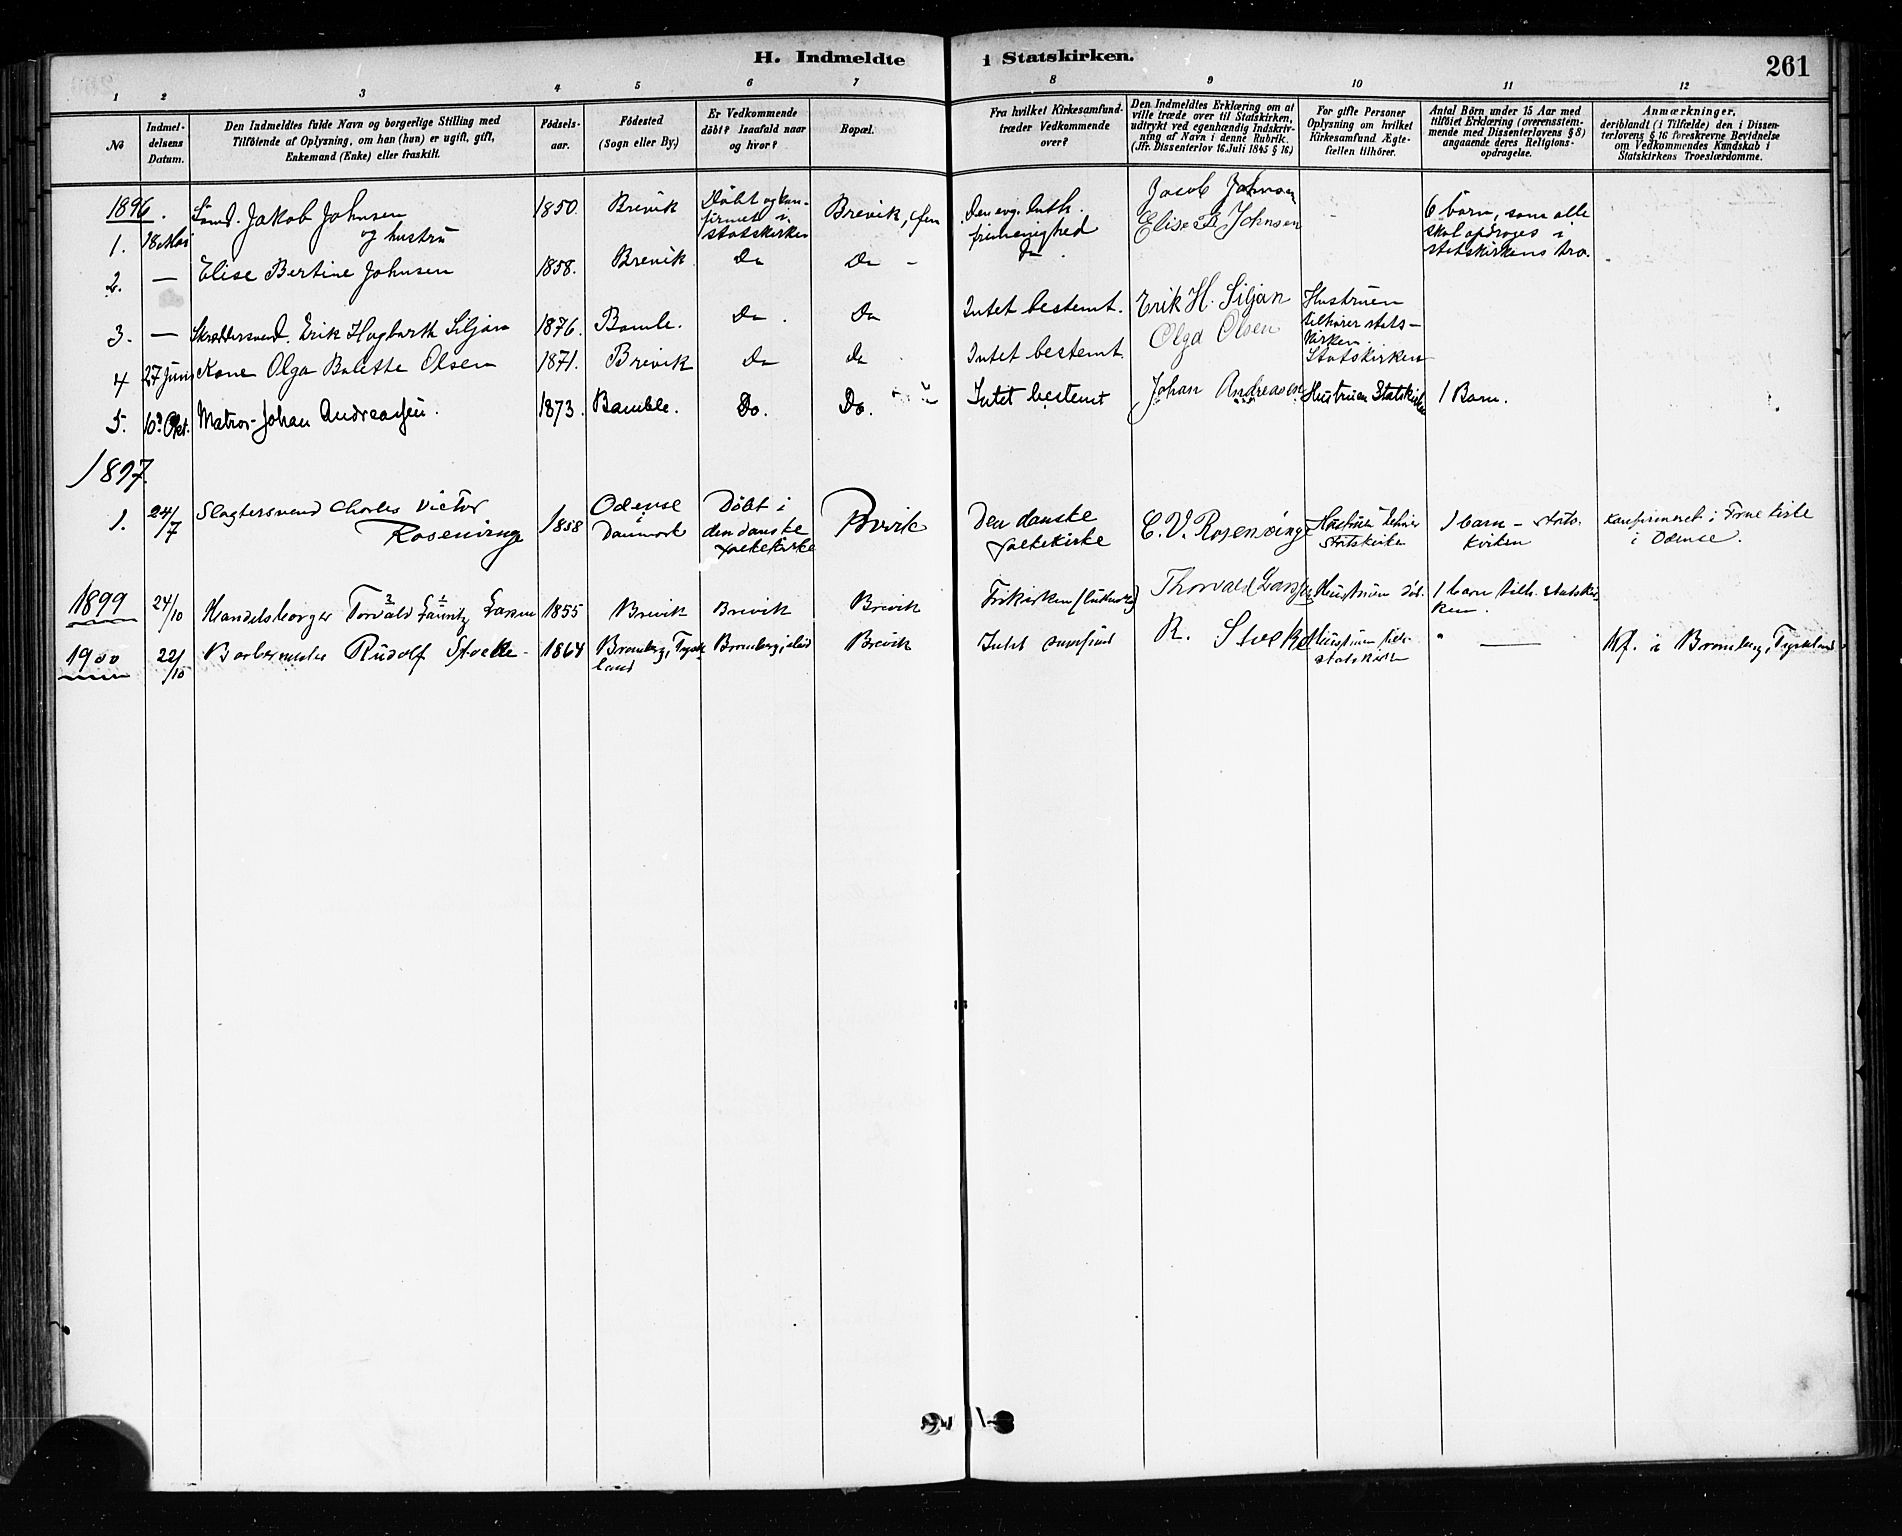 H. Indmeldte i Statskirken. 261
1 2 3 4 5 6 7 8 9 10 11 12
No
Indmel-
delsens
Datum.
Den Indmeldtes fulde Navn og borgerlige Stilling med
Tilföiende af Oplysning, om han (hun) er ugift, gift,
Enkemand (Enke) eller fraskilt.
Födsels-
aar.
Födested
(Sogn eller By)
Er Vedkommende
döbt? Isaafald naar
og hvor?
Bopæl.
Fra hvilket Kirkesamfund
træder Vedkommende
over?
Den Indmeldtes Erklæring om at
ville træde over til Statskirken,
udtrykt ved egenhændig Indskriv-
ning af Navn i denne Rubrik.
(Jfr. Dissenterlov 16. Juli 1845 § 16)
For gifte Personer
Oplysning om hvilket
Kirkesamfund Ægte-
fællen tilhörer.
Antal Börn under 15 Aar med
tilföiet Erklæring (overensstem-
mende med Dissenterlovens § 8)
angaaende deres Religions-
opdragelse.
Anmærkninger,
deriblandt (i Tilfælde) den i Dissen-
terlovens § 16 foreskrevne Bevidnelse
om Vedkommendes Kundskab i
Statskirkens Troeslærdomme.
1896.
1. 18 Mai Sømd. Jakob Johnsen
og hustru
1850. Brevik
Døbt og kon-
firmet i
statskirken
Brevik,
Den evg. luth.
frimenighed
Jacob Johnsen
6 børn, som alle
skal opdroges i
statskirkens tro.
2. — Elise Bertine Johnsen 1858. Brevik Do Do - Do. Elise B Johnsen
3. — Skræddersvend. Erik Hagbarth Siljan 1876. Bamle. Do. Do Intet bestemt. Erik H. Siljan
Hustruen
tilhører stats-
kirken.
4 27 Juni Kone Olga Bolette Olsen 1871. Brevik Do do Intet bestemt. Olga Olsen Statskirken
5. 10de Okt. Matros Johan Andreassen. 1873. Bamble. Do. Do. Intet bestemt Johan Andreasen Hustruen Statskirken 1 Barn.
1897.
1. 24/7 Slagtersvend Charles Victor
Rosenvinge
1858
Odense
Danmark
Døbt i
den danske
folkekirke
Brvik
Den danske
folkekirke
C. V. Rosenvinge
Hustruen tilhører
Statskirken
1 barn - stats-
kirken
Konfirmeret i Frue kirke
i Odense.
1899 24/10 Handelsborger Torvald Lauritz Larsen 1855 Brevik Brevik Brevik Frikirken (luthersk) Thorvald Larsen Hustruen do.
1 barn tilh. statskir-
ken.
1900 22/10 Barbermester Rudolf Stocke - 1864
Bromberg, Tysk-
land
Bromberg, Brevik Intet samfund R. Stocke
Hustruen tilh.
statskirken
" —
Kf. i Bromberg, Tyskland